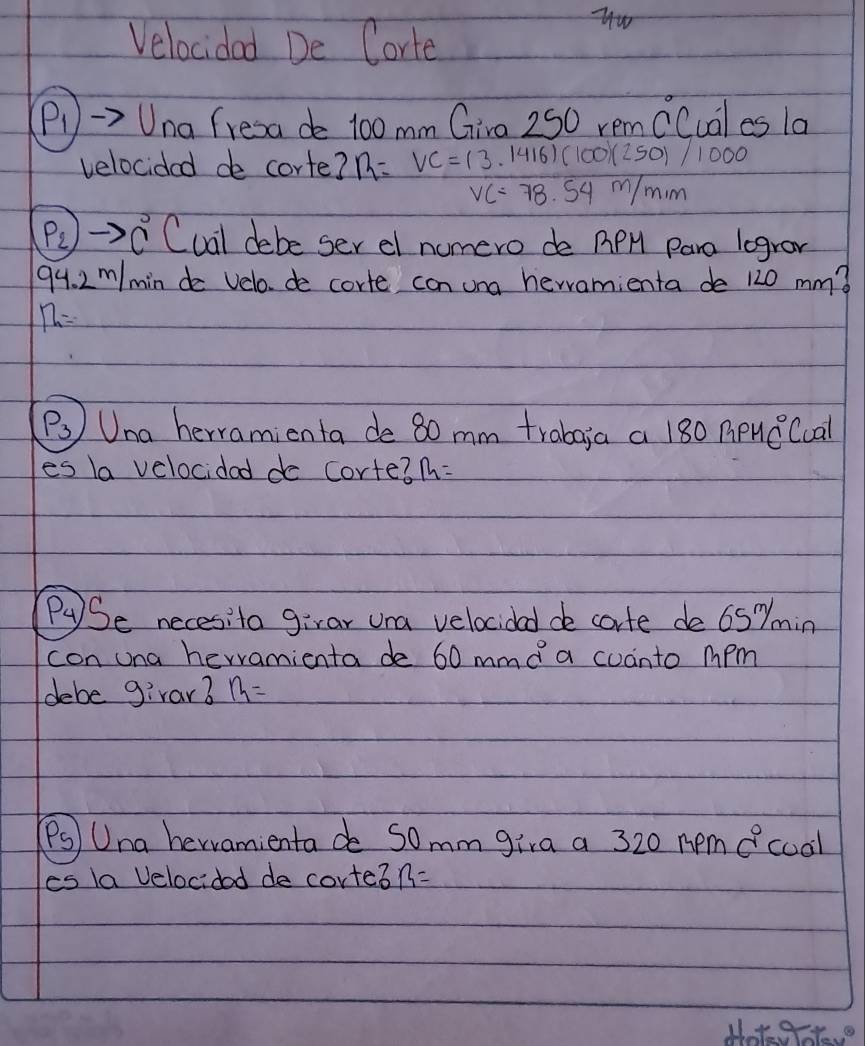 Velocidad De Corte
P1 → Una fresa de 100 mm Gira 250 rpm ¿Cuál es la
velocidad de corte? R= VC = (3.1416)(100)(250)/1000
VC= 78.54 m/mim
P2 → ¿Cuál debe ser el numero de RPM para lograr
94.2 m/min de velo. de corte con una herramienta de 120 mm?
R=
P3 Una herramienta de 80 mm trabaja a 180 RPM ¿Cual
es la velocidad de corte? R=
P4 Se necesita girar una velocidad de corte de 65 m/min
con una herramienta de 60 mm ¿ a cuánto Rpm
debe girar? R=
P5 Una herramienta de 50 mm gira a 320 rpm ¿ cual
es la Velocidad de corte? R=
HotsyTotsy®